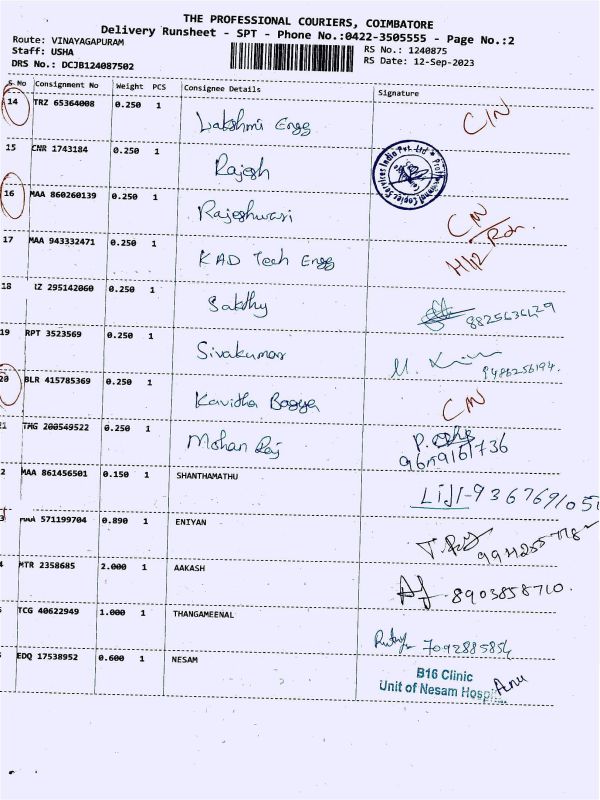 THE PROFESSIONAL COURIERS, COIMBATORE
Delivery Runsheet - SPT - Phone No.:0422-3505555 - Page No.:2
Route: VINAYAGAPURAM
Staff: USHA
DRS No.: DCJB124087502
RS No.: 1240875
RS Date: 12-Sep-2023
S.No Consignment No Weight PCS Consignee Details Signature
14 TRZ 65364008 0.250 1 Lakshmi Engg C/N
15 CNR 1743184 0.250 1 Rajesh
16 MAA 860260139 0.250 1 Rajeshwari C/N
17 MAA 943332471 0.250 1 KAD Tech Engg
18 LZ 295142060 0.250 1 Sakthy 8825636429
19 RPT 3523569 0.250 1 Sivakumar 9486256194.
20 BLR 415785369 0.250 1 Kavitha Bagya C/N
21 TMG 200549522 0.250 1 Mohan Raj
2 MAA 861456501 0.150 1 SHANTHAMATHU
3 MAA 571199704 0.890 1 ENIYAN
4 MTR 2358685 2.000 1 AAKASH 8903858710.
TCG 40622949 1.000 1 THANGAMEENAL 7092885854
EDQ 17538952 0.600 1 NESAM
B16 Clinic
Unit of Nesam Hospi